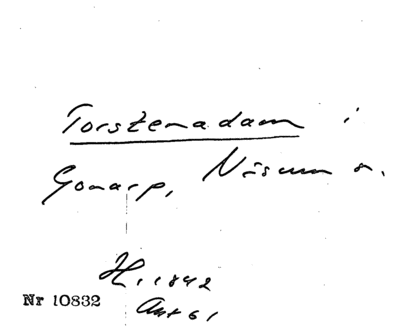 Torstenadam i
Gonarp, Näsum s.
H. 1842
Ant 61
Nr 10832